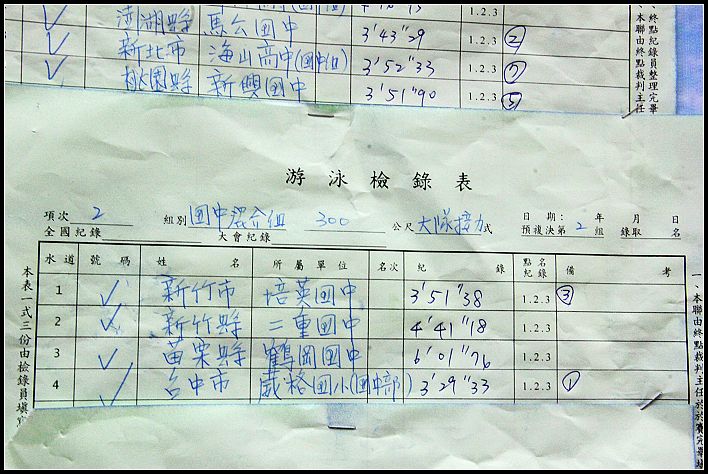 澎湖縣 馬公國中 3'43"29 1.2.3 ②
新北市 海山高中(國中組) 3'52"33 1.2.3 ⑦
桃園縣 新興國中 3'51"90 1.2.3 ⑤
、終點紀錄員整理完畢
本聯由終點裁判主任
游泳檢錄表
項次 2 組別 國中 組 300 公尺 大隊接力 式 日期： 年 月 日
全國紀錄 大會紀錄 預複決第 2 組 錄取 名
水道 號碼 姓名 所屬單位 名次 紀錄 點名紀錄 備考
1 ✓ 新竹市 培英國中 3'51"38 1.2.3 ③
2 ✓ 新竹縣 二重國中 4'41"18 1.2.3
3 ✓ 苗栗縣 鶴岡國中 6'01"76 1.2.3
4 ✓ 台中市 葳格國小(國中部) 3'29"33 1.2.3 ①
本表一式三份由檢錄員填寫
一、本聯由終點裁判主任於